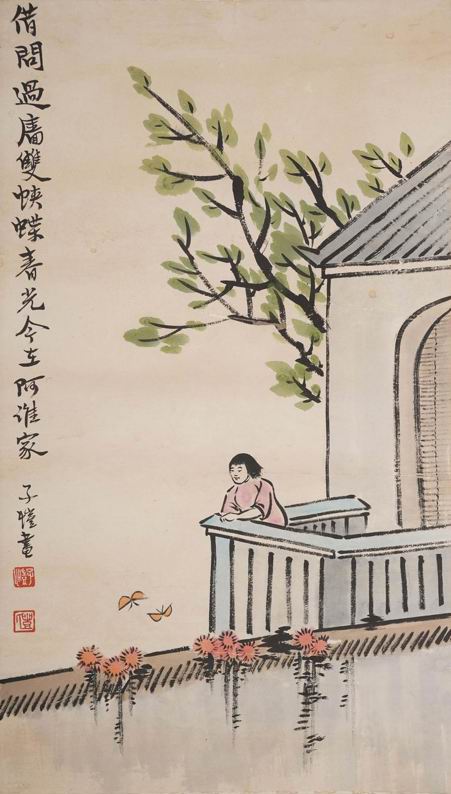 借問過牆雙蛺蝶春光今在阿誰家
子愷畫